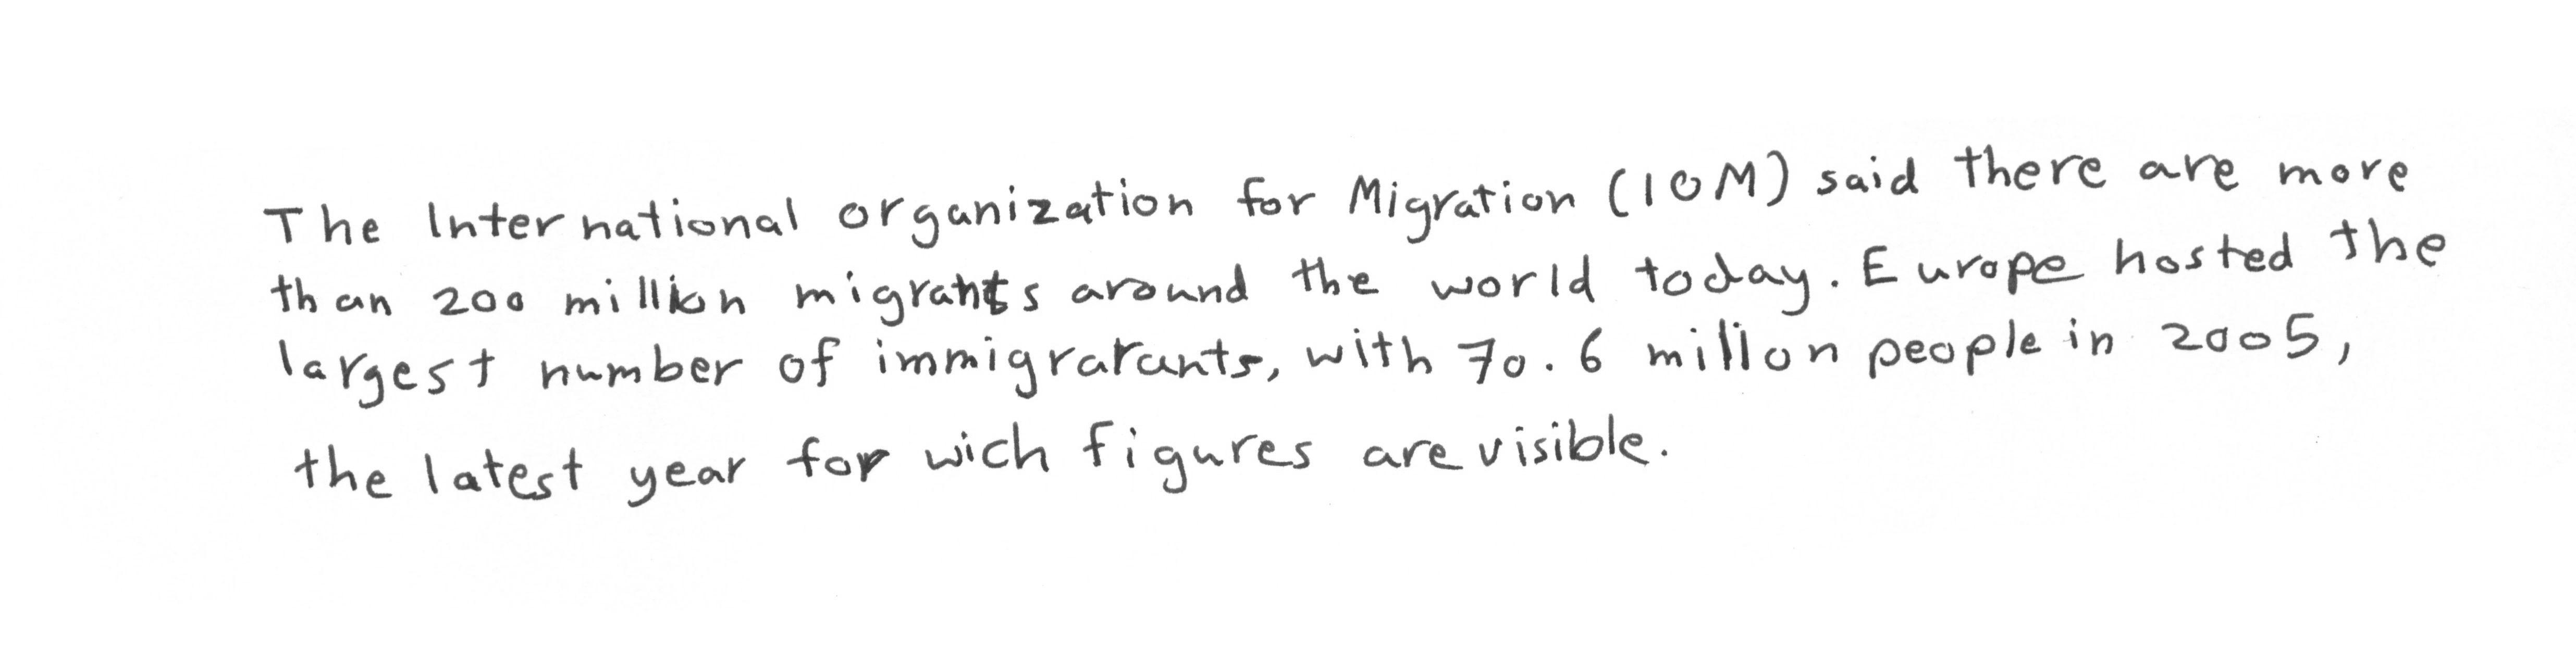 The International organization for Migration (IOM) said there are more
than 200 million migrants around the world today. Europe hosted the
largest number of immigrarants, with 70.6 millon people in 2005,
the latest year for wich figures are visible.